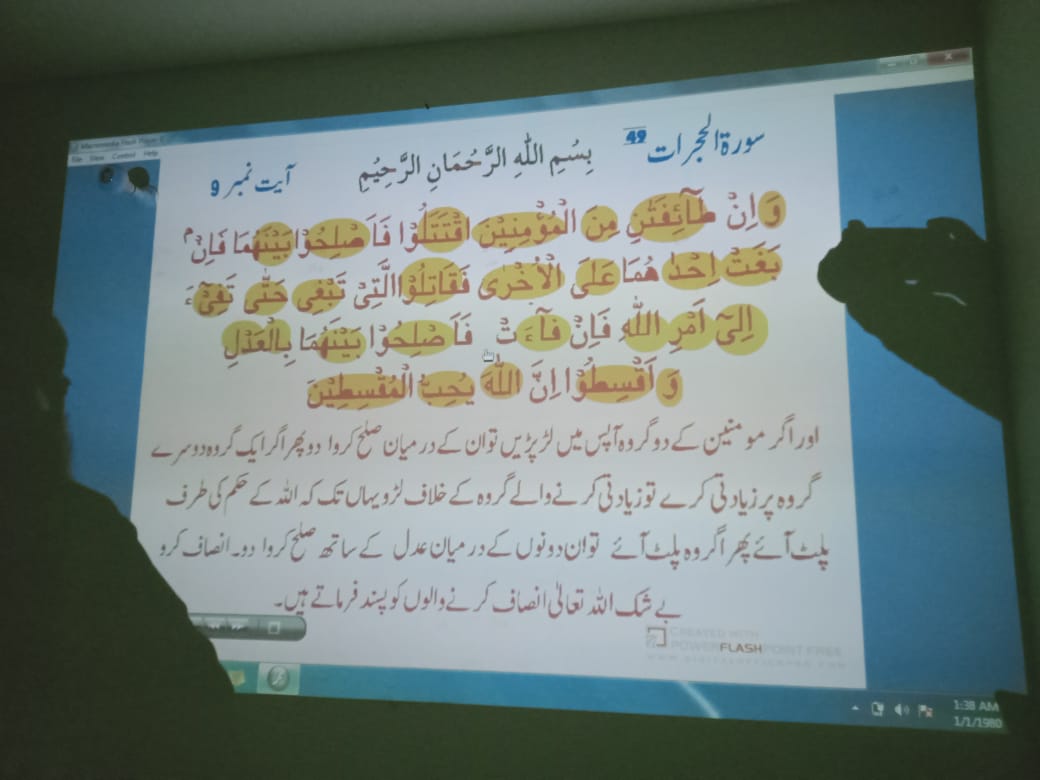 Macromedia Flash Player
File View Control Help
سورۃ الحجرات 49
بِسْمِ اللّٰهِ الرَّحْمَانِ الرَّحِيْمِ
آیت نمبر 9
وَ اِنْ طَآئِفَتٰنِ مِنَ الْمُؤْمِنِيْنَ اقْتَتَلُوْا فَاَصْلِحُوْا بَيْنَهُمَا فَاِنْۢ
بَغَتْ اِحْدٰىهُمَا عَلَى الْاُخْرٰى فَقَاتِلُوا الَّتِيْ تَبْغِيْ حَتّٰى تَفِيْٓءَ
اِلٰٓى اَمْرِ اللّٰهِ فَاِنْ فَآءَتْ فَاَصْلِحُوْا بَيْنَهُمَا بِالْعَدْلِ
وَ اَقْسِطُوْا اِنَّ اللّٰهَ يُحِبُّ الْمُقْسِطِيْنَ
اور اگر مومنین کے دو گروہ آپس میں لڑ پڑیں تو ان کے درمیان صلح کروا دو پھر اگر ایک گروہ دوسرے
گروہ پر زیادتی کرے تو زیادتی کرنے والے گروہ کے خلاف لڑو یہاں تک کہ اللہ کے حکم کی طرف
پلٹ آئے پھر اگر وہ پلٹ آئے تو ان دونوں کے درمیان عدل کے ساتھ صلح کروا دو۔ انصاف کرو
بے شک اللہ تعالیٰ انصاف کرنے والوں کو پسند فرماتے ہیں۔
CREATED WITH
POWERFLASHPOINT FREE
1:38 AM
1/1/1980